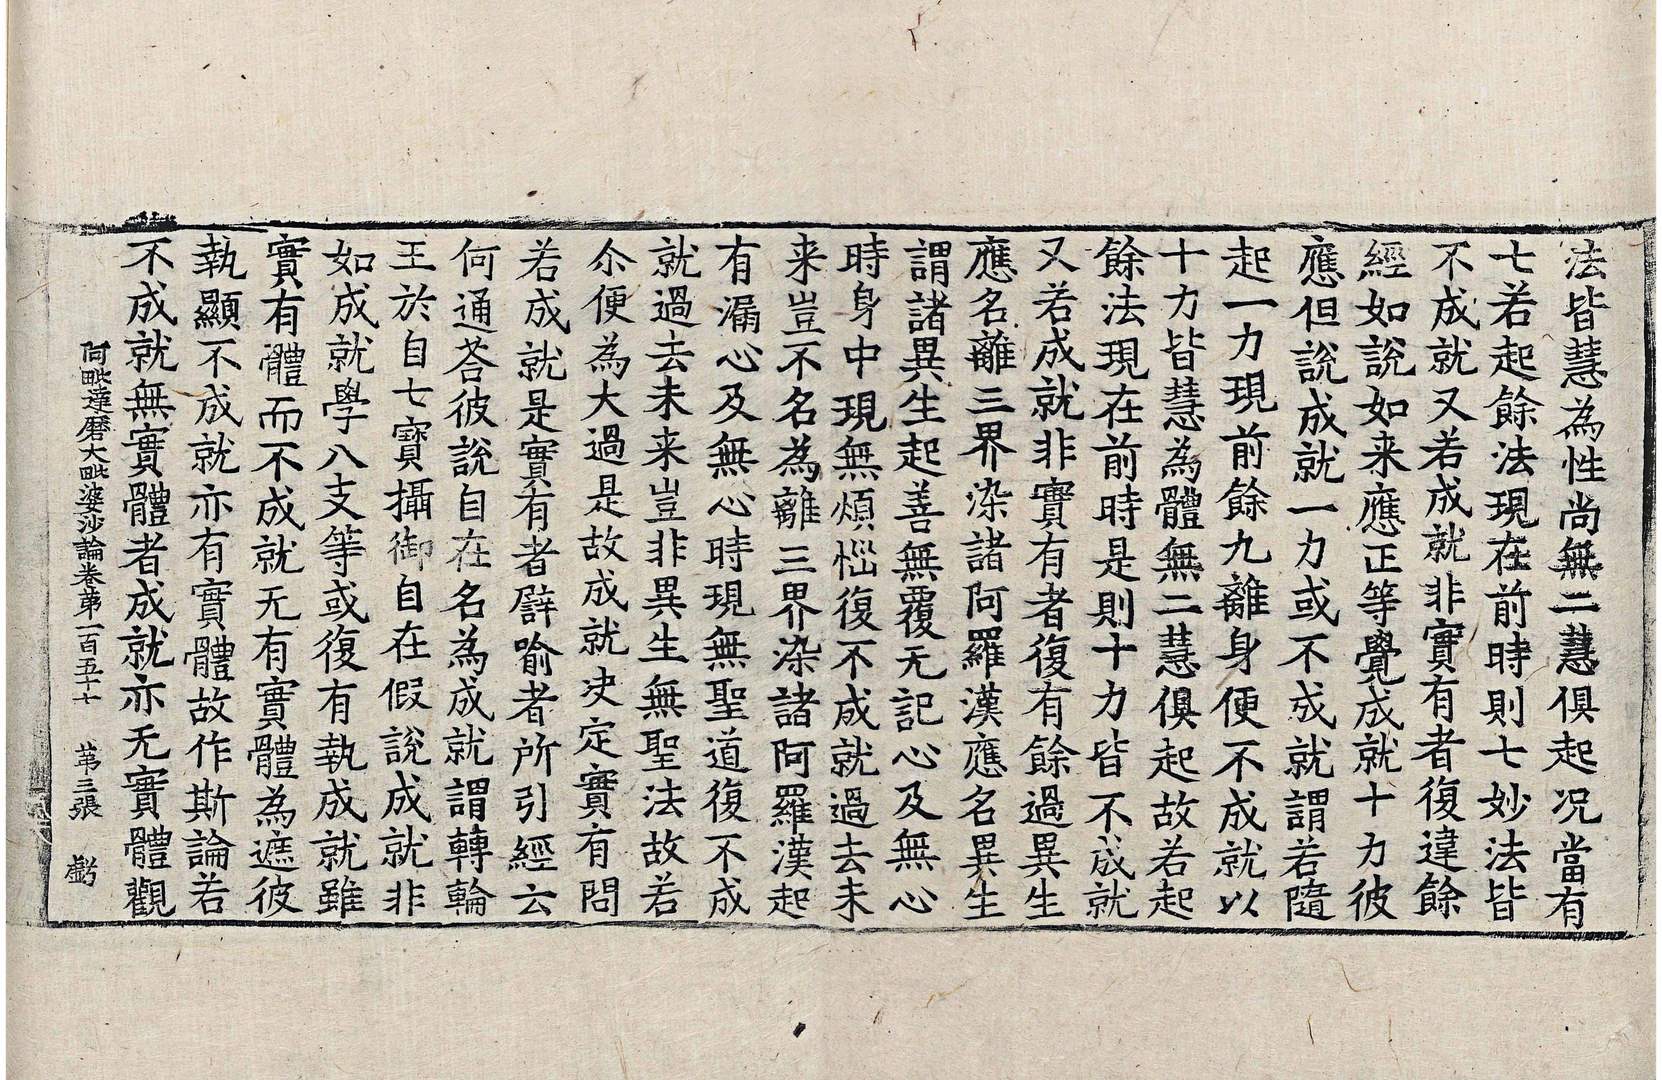 法皆慧為性尚無二慧俱起况當有
七若起餘法現在前時則七妙法皆
不成就又若成就非實有者復違餘
經如說如来應正等覺成就十力彼
應但說成就一力或不成就謂若隨
起一力現前餘九離身便不成就以
十力皆慧為體無二慧俱起故若起
餘法現在前時是則十力皆不成就
又若成就非實有者復有餘過異生
應名離三界染諸阿羅漢應名異生
謂諸異生起善無覆无記心及無心
時身中現無煩惱復不成就過去未
来豈不名為離三界染諸阿羅漢起
有漏心及無心時現無聖道復不成
就過去未来豈非異生無聖法故若
尒便為大過是故成就决定實有問
若成就是實有者譬喻者所引經云
何通荅彼說自在名為成就謂轉輪
王於自七寳攝御自在假說成就非
如成就學八支等或復有執成就雖
實有體而不成就无有實體為遮彼
執顯不成就亦有實體故作斯論若
不成就無實體者成就亦无實體觀
阿毗達磨大毗婆沙論卷苐一百五十七 苐三張 虧